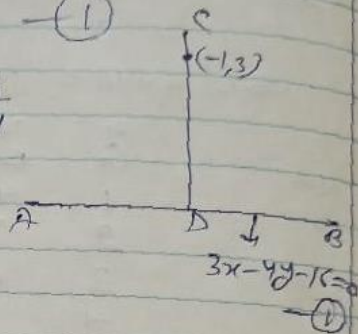 ①
C
(-1,3)
A D B
3x-4y-16=0
①